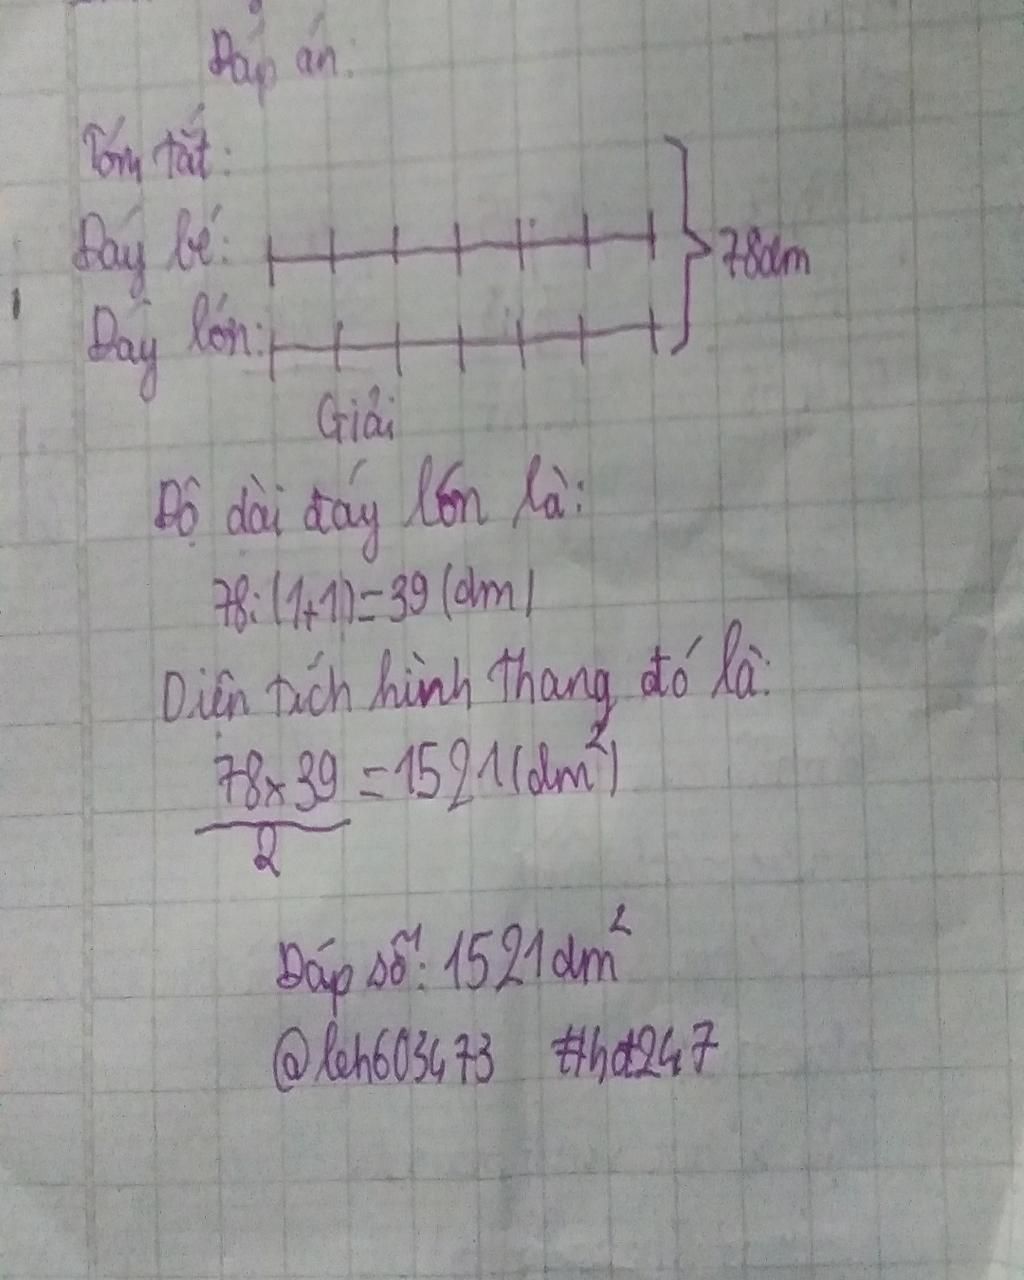 Đáp án:
Tóm tắt:
Đáy bé:
78dm
Đáy lớn:
Giải
Độ dài đáy lớn là:
78:(1+1)=39(dm)
Diện tích hình thang đó là:
78x39/2 =1521(dm²)
Đáp số: 1521dm²
@leh603473 #hd247